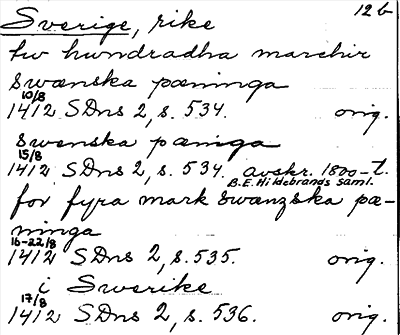 Sverige, rike 12 b
tw hundradha marchir
swænska pæninga
10/8
1412 SDns 2, s. 534. orig.
swenska pæniga
15/8
1412 SDns 2, s. 534. avskr. 1800-t.
B.E. Hildebrands saml.
for fyra mark swanzska pæ-
ninga
16-22/8
1412 SDns 2, s. 535. orig.
i Swerike
17/8
1412 SDns 2, s. 536. orig.